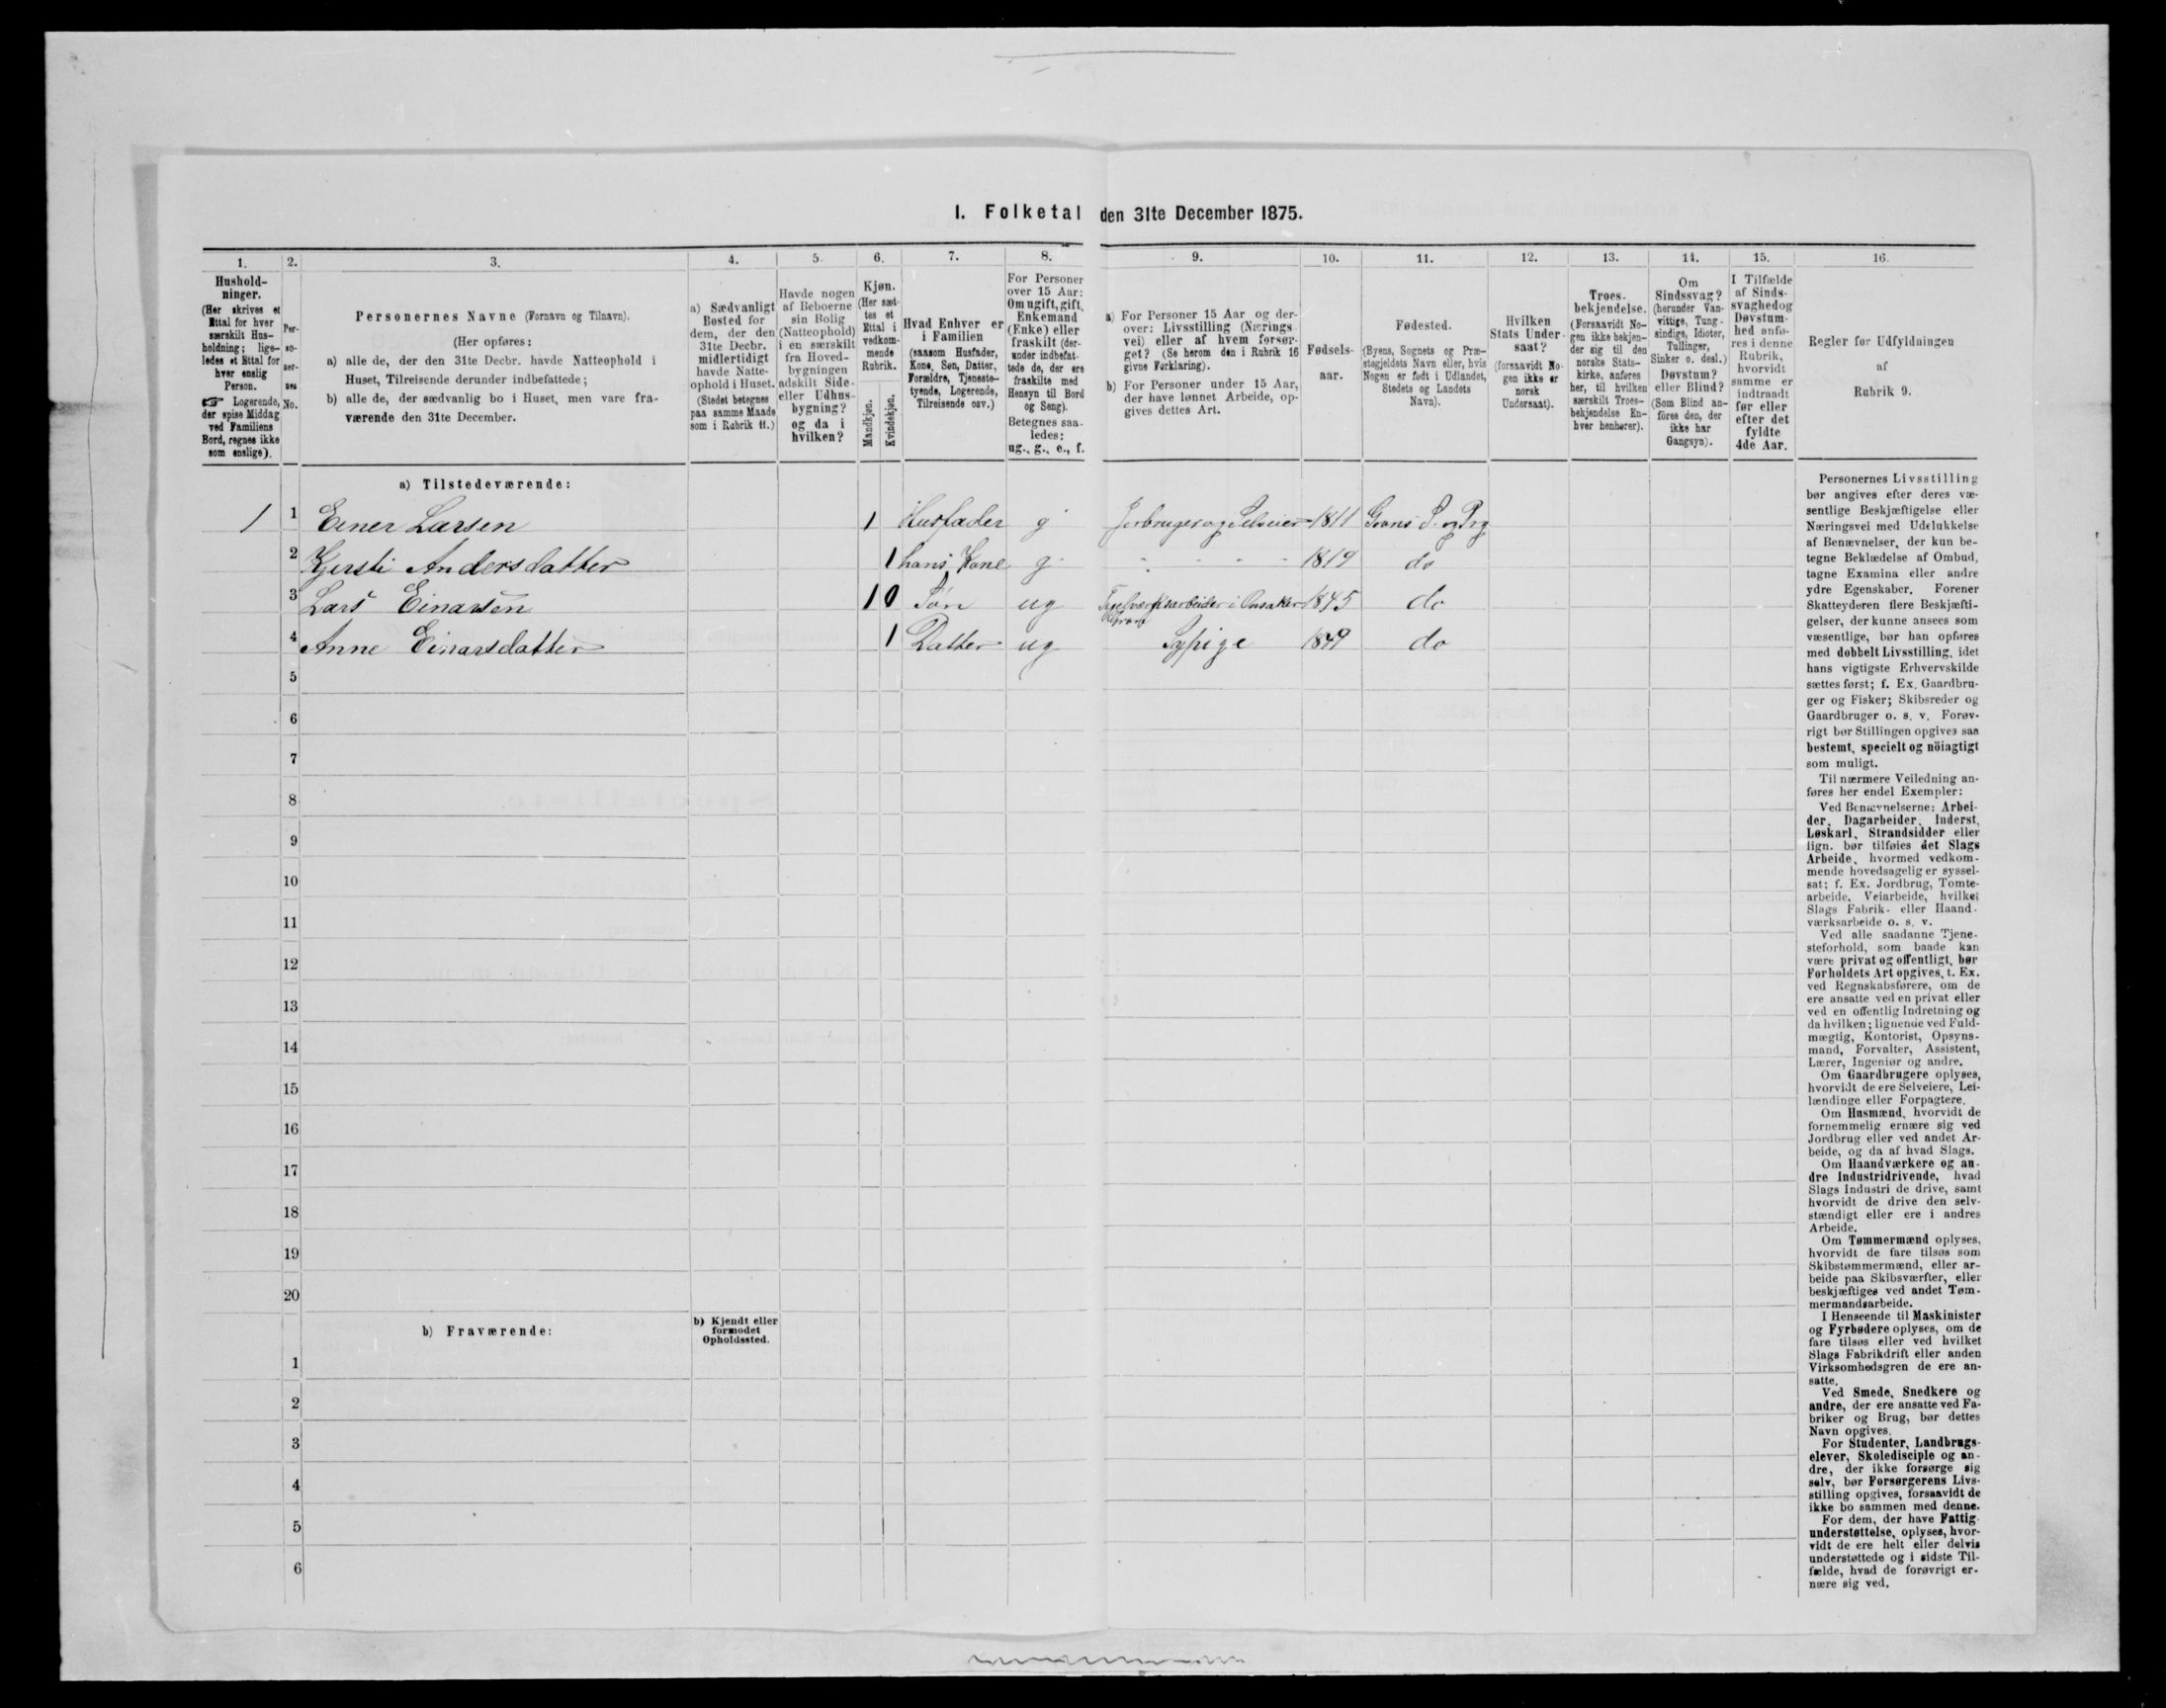 I. Folketal den 31te December 1875.
1. 2. 3. 4. 5. 6. 7. 8. 9. 10. 11. 12. 13. 14. 15. 16.
Hushold-
ninger.
(Her skrives et
Ettal for hver
særskilt Hus-
holdning; lige-
ledes et Ettal for
hver enslig
Person.
☞ Logerende,
der spise Middag
ved Familiens
Bord, regnes ikke
som enslige).
Per-
so-
ner-
nes
No.
Personernes Navne (Fornavn og Tilnavn).
(Her opføres:
a) alle de, der den 31te Decbr. havde Natteophold i
Huset, Tilreisende derunder indbefattede;
b) alle de, der sædvanlig bo i Huset, men vare fra-
værende den 31te December.
a) Sædvanligt
Bosted for
dem, der den
31te Decbr.
midlertidigt
havde Natte-
ophold i Huset.
(Stedet betegnes
paa samme Maade
som i Rubrik 11.)
Havde nogen
af Beboerne
sin Bolig
(Natteophold)
i en særskilt
fra Hoved-
bygningen
adskilt Side-
eller Udhus-
bygning?
og da i
hvilken?
Kjøn.
(Her sæt-
tes et
Ettal i
vedkom-
mende
Rubrik.
Mandkjøn.
Kvindekjøn.
Hvad Enhver er
i Familien
(saasom Husfader,
Kone, Søn, Datter,
Forældre, Tjeneste-
tyende, Logerende,
Tilreisende osv.)
For Personer
over 15 Aar:
Om ugift, gift,
Enkemand
(Enke) eller
fraskilt (der-
under indbefat-
tede de, der ere
fraskilte med
Hensyn til Bord
og Seng).
Betegnes saa-
ledes:
ug., g., e., f.
a) For Personer 15 Aar og der-
over: Livsstilling (Nærings-
vei) eller af hvem forsør-
get? (Se herom den i Rubrik 16
givne Forklaring).
b) For Personer under 15 Aar,
der have lønnet Arbeide, op-
gives dettes Art.
Fødsels-
aar.
Fødested.
(Byens, Sognets og Præ-
stegjeldets Navn eller, hvis
Nogen er født i Udlandet,
Stedets og Landets
Navn).
Hvilken
Stats Under-
saat?
(forsaavidt No-
gen ikke er
norsk
Undersaat).
Troes-
bekjendelse.
(Forsaavidt No-
gen ikke bekjen-
der sig til den
norske Stats-
kirke, anføres
her, til hvilken
særskilt Troes-
bekjendelse En-
hver henhører).
Om
Sindssvag?
(herunder Van-
vittige, Tung-
sindige, Idioter,
Tullinger,
Sinker o. desl.)
Døvstum?
eller Blind?
(Som Blind an-
føres den, der
ikke har
Gangsyn).
I Tilfælde
af Sinds-
svaghed og
Døvstum-
hed anfø-
res i denne
Rubrik,
hvorvidt
samme er
indtraadt
før eller
efter det
fyldte
4de Aar.
Regler for Udfyldningen
af
Rubrik 9.
a) Tilstedeværende:
1 1 Einer Larsen 1 Husfader g Jorbruger og Selveier 1811 Grans S. og Prg
2 Kjersti Andersdatter 1 hans Kone g 1819 do
3 Lars Einarsen 1 0 Søn ug 1845 do
4 Anne Einarsdatter 1 Datter ug Sypige 1849 do
5
6
7
8
9
10
11
12
13
14
15
16
17
18
19
20
b) Fraværende:
b) Kjendt eller
formodet
Opholdssted.
1
2
3
4
5
6
Personernes Livsstilling
bør angives efter deres væ-
sentlige Beskjæftigelse eller
Næringsvei med Udelukkelse
af Benævnelser, der kun be-
tegne Beklædelse af Ombud,
tagne Examina eller andre
ydre Egenskaber. Forener
Skatteyderen flere Beskjæfti-
gelser, der kunne ansees som
væsentlige, bør han opføres
med dobbelt Livsstilling, idet
hans vigtigste Erhvervskilde
sættes først; f. Ex. Gaardbru-
ger og Fisker; Skibsreder og
Gaardbruger o. s. v. Forøv-
rigt bør Stillingen opgives saa
bestemt, specielt og nöiagtigt
som muligt.
Til nærmere Veiledning an-
føres her endel Exempler:
Ved Benævnelserne: Arbei-
der, Dagarbeider, Inderst,
Løskarl, Strandsidder eller
lign. bør tilføies det Slags
Arbeide, hvormed vedkom-
mende hovedsagelig er syssel-
sat; f. Ex. Jordbrug, Tomte-
arbeide, Veiarbeide, hvilket
Slags Fabrik- eller Haand-
værksarbeide o. s. v.
Ved alle saadanne Tjene-
steforhold, som baade kan
være privat og offentligt, bør
Forholdets Art opgives, t. Ex.
ved Regnskabsførere, om de
ere ansatte ved en privat eller
ved en offentlig Indretning og
da hvilken; lignende ved Fuld-
mægtig, Kontorist, Opsyns-
mand, Forvalter, Assistent,
Lærer, Ingeniør og andre.
Om Gaardbrugere oplyses,
hvorvidt de ere Selveiere, Lei-
lændinge eller Forpagtere.
Om Husmænd, hvorvidt de
fornemmelig ernære sig ved
Jordbrug eller ved andet Ar-
beide, og da af hvad Slags.
Om Haandværkere og an-
dre Industridrivende, hvad
Slags Industri de drive, samt
hvorvidt de drive den selv-
stændigt eller ere i andres
Arbeide.
Om Tømmermænd oplyses,
hvorvidt de fare tilsøs som
Skibstømmermænd, eller ar-
beide paa Skibsværfter, eller
beskjæftiges ved andet Tøm-
mermandsarbeide.
I Henseende til Maskinister
og Fyrbødere oplyses, om de
fare tilsøs eller ved hvilket
Slags Fabrikdrift eller anden
Virksomhedsgren de ere an-
satte.
Ved Smede, Snedkere og
andre, der ere ansatte ved Fa-
briker og Brug, bør dettes
Navn opgives.
For Studenter, Landbrugs-
elever, Skoledisciple og an-
dre, der ikke forsørge sig
selv, bør Forsørgerens Livs-
stilling opgives, forsaavidt de
ikke bo sammen med denne.
For dem, der have Fattig-
understøttelse, oplyses, hvor-
vidt de ere helt eller delvis
understøttede og i sidste Til-
fælde, hvad de forøvrigt er-
nære sig ved.